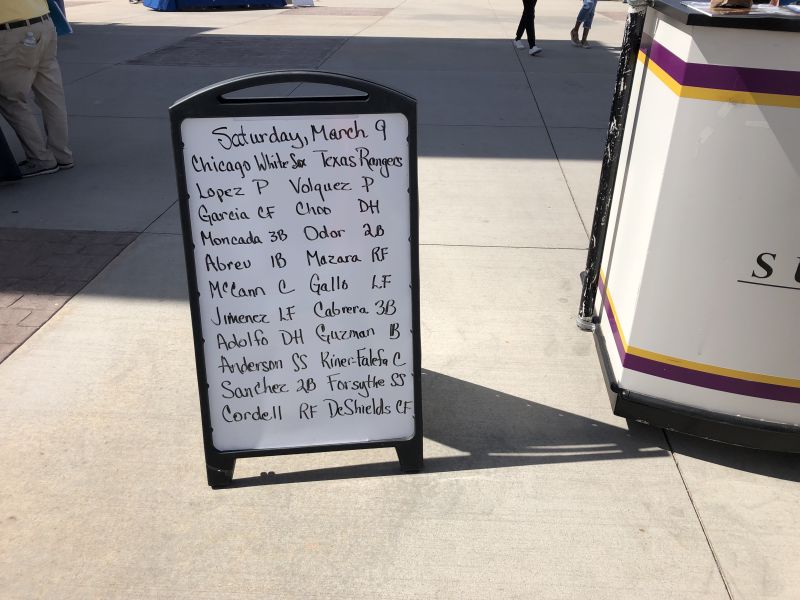 Saturday, March 9
Chicago White Sox Texas Rangers
Lopez P Volquez P
Garcia CF Choo DH
Moncada 3B Odor 2B
Abreu 1B Mazara RF
McCann C Gallo LF
Jimenez LF Cabrera 3B
Adolfo DH Guzman 1B
Anderson SS Kiner-Falefa C
Sanchez 2B Forsythe SS
Cordell RF DeShields CF
SU